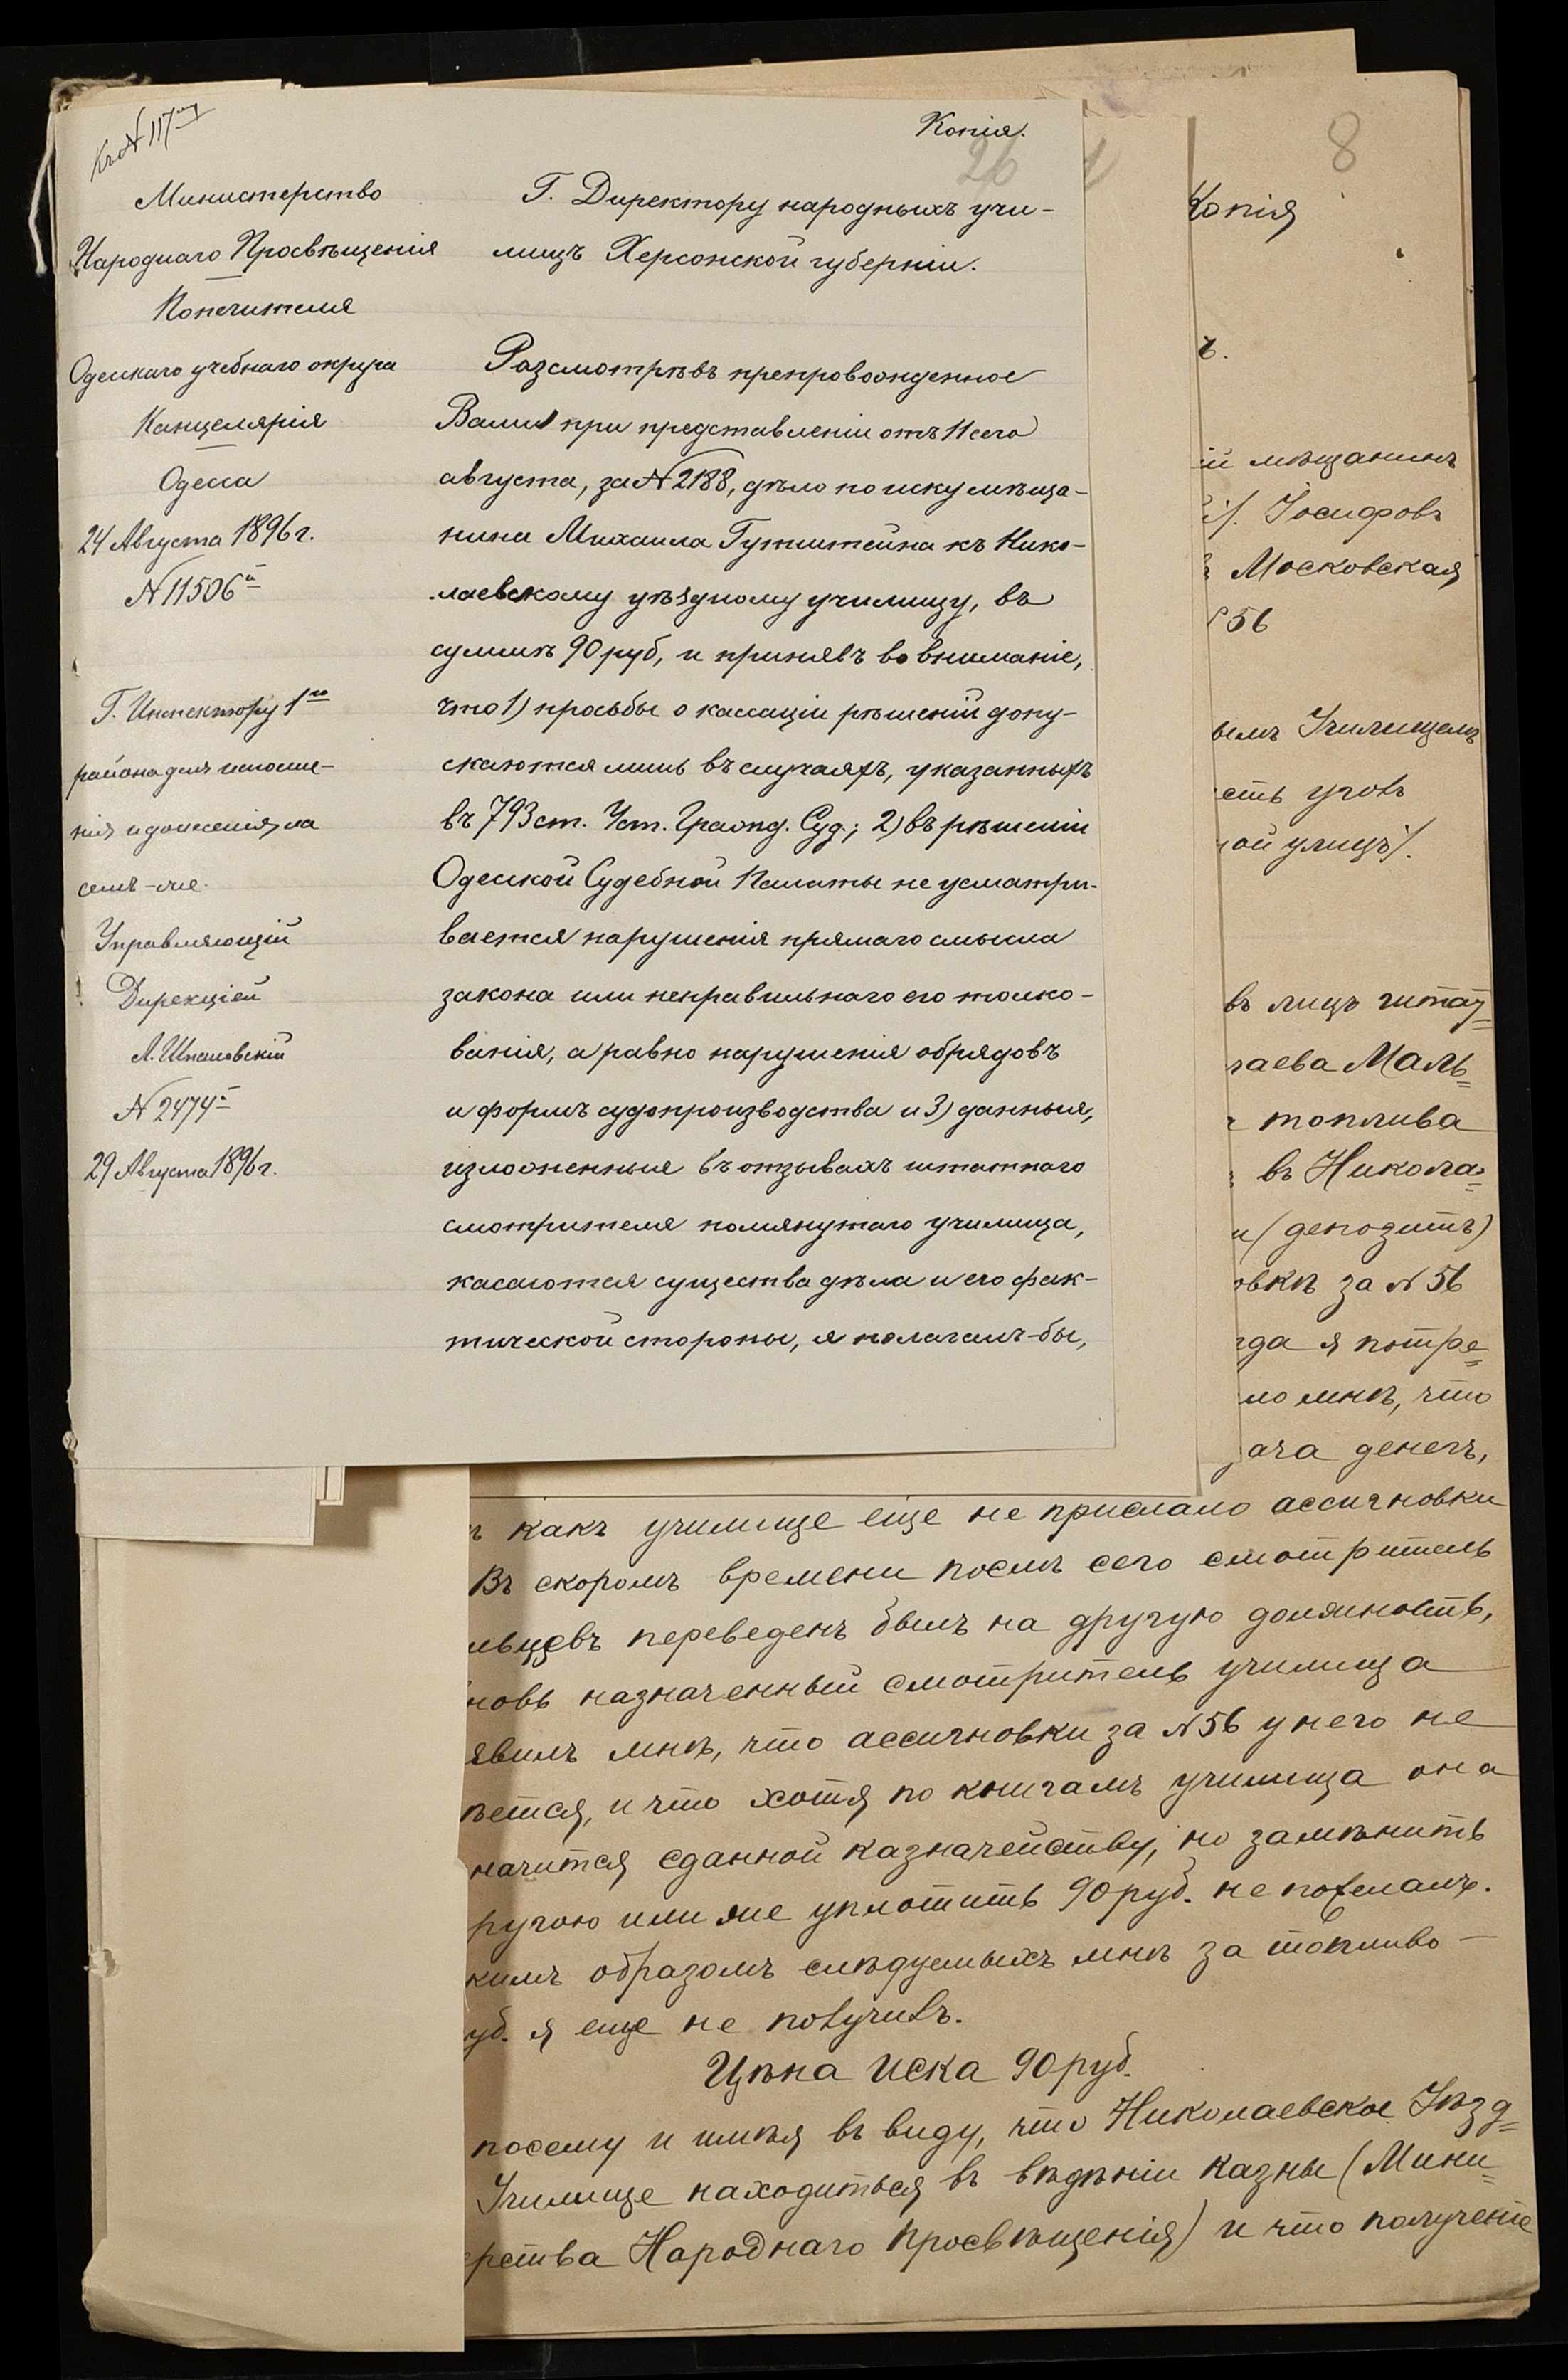 Къ № 117
Копія.
26
Министерство
Народнаго Просвѣщенія
Попечителя
Одесскаго учебнаго округа
Канцелярія
Одесса
24 Августа 1896 г.
№ 11506
Г. Инспектору 1го
района для исполне-
нія и донесенія на
семъ-же.
Управляющій
Дирекціей
№ 2474
29 Августа 1896 г.
Г. Директору народныхъ учи-
лищъ Херсонской губерніи.
Разсмотрѣвъ препровожденное
Вами при представленіи отъ 11 сего
августа, за № 2188, дѣло по иску мѣща-
нина Михаила Гутштейна къ Нико-
лаевскому уѣздному училищу, въ
суммѣ 90 руб, и принявъ во вниманіе,
что 1) просьбы о кассаціи рѣшеній допу-
скаются лишь въ случаяхъ, указанныхъ
въ 793 ст. Уст. Гражд. Суд.; 2) въ рѣшеніи
Одесской Судебной Палаты не усматри-
вается нарушенія прямаго смысла
закона или неправильнаго его толко-
ванія, а равно нарушенія обрядовъ
и формъ судопроизводства и 3) данныя,
изложенныя въ отзывахъ штатнаго
смотрителя помянутаго училища,
касаются существа дѣла и его фак-
тической стороны, я полагалъ-бы,
8
Копія
ъ.
ій мѣщанинъ
Іосифовъ
Московская
56
ымъ Училищемъ
сть уголъ
ной улицъ/.
въ лицѣ штат=
лаева Маль=
топлива
въ Никола=
и (депозитъ)
овкѣ за № 56
гда я потре=
ло мнѣ, что
дача денегъ,
ъ какъ училище еще не прислало ассигновки
Въ скоромъ времени послѣ сего смотритель
льцевъ переведенъ былъ на другую должность,
новь назначенный смотритель училища
явилъ мнѣ, что ассигновки за № 56 у него не
ѣется, и что хотя по книгамъ училища она
начится сданной казначейству, но замѣнить
ругою или же уплотить 90 руб. не пожелалъ.
кимъ образомъ слѣдуемыхъ мнѣ за топливо —
уб. я еще не получилъ.
Цѣна иска 90 руб.
посему и имѣя въ виду, что Николаевское Уѣзд=
Училище находиться въ вѣдѣніи казны (Мини=
ерства Народнаго Просвѣщенія) и что полученіе